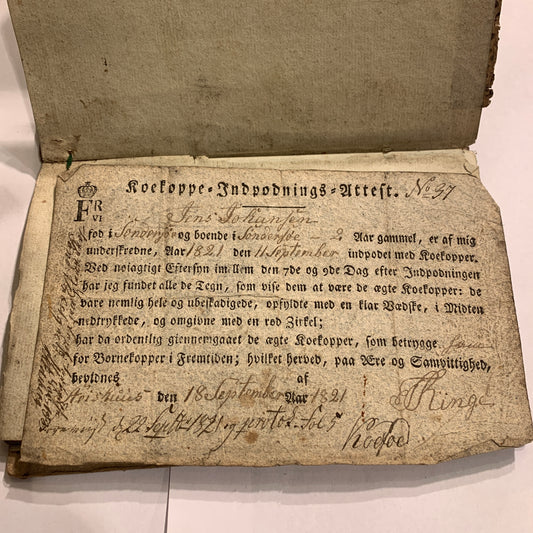 Koekoppe-Indpodnings-Attest. No 97
FR
VI
Jens Johansen
fød i Söndersöe og boende i Söndersöe - 2 Aar gammel, er af mig
underskrevne, Aar 1821 den 11 September indpodet med Koekopper.
Ved nøiagtig Eftersyn imellem den 7de og 9de Dag efter Indpodningen
har jeg fundet alle de Tegn, som vise dem at være de ægte Koekopper: de
vare nemlig hele og ubeskadigede, opfyldte med en klar Vædske, i Midten
nedtrykkede, og omgivne med en rød Zirkel;
har da ordentlig giennemgaaet de ægte Koekopper, som betrygge
for Børnekopper i Fremtiden; hvilket herved, paa Ære og Samvittighed,
bevidnes af
den 18 September Aar 1821
d 22 Septbr 1821 og protok. Fol 5